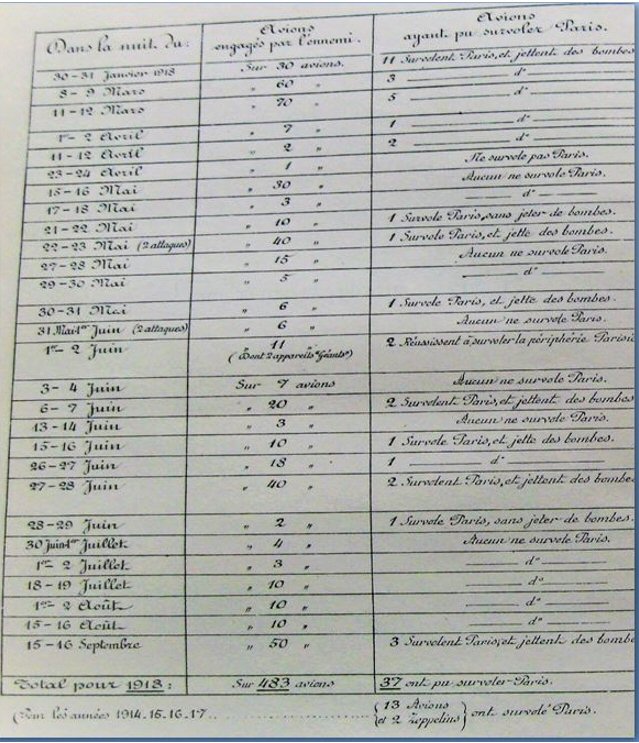 Dans la nuit du: Avions engagés par l'ennemi. Avions ayant pu survoler Paris.
30-31 Janvier 1918 Sur 30 avions. 11 Survolent Paris, et jettent des bombes
8-9 Mars " 60 " 3 d°
11-12 Mars " 70 " 5 d°
1er-2 Avril " 7 " 1 d°
11-12 Avril " 2 " 2 d°
23-24 Avril " 1 " Ne survole pas Paris.
15-16 Mai " 30 " Aucun ne survole Paris.
17-18 Mai " 3 " d°
21-22 Mai " 10 " 1 Survole Paris, sans jeter de bombes.
22-23 Mai (2 attaques) " 40 " 1 Survole Paris, et jette des bombes.
27-28 Mai " 15 " Aucun ne survole Paris.
29-30 Mai " 5 " d°
30-31 Mai " 6 " 1 Survole Paris, et jette des bombes.
31 Mai-1er Juin (2 attaques) " 6 " Aucun ne survole Paris.
1er-2 Juin " 11 " 2 Réussissent à survoler la périphérie Parisi
(Dont 2 appareils "Géants")
3-4 Juin Sur 7 avions Aucun ne survole Paris.
6-7 Juin " 20 " 2 Survolent Paris, et jettent des bombes
13-14 Juin " 3 " Aucun ne survole Paris.
15-16 Juin " 10 " 1 Survole Paris, et jette des bombes.
26-27 Juin " 18 " 1 d°
27-28 Juin " 40 " 2 Survolent Paris, et jettent des bombes
28-29 Juin " 2 " 1 Survole Paris, sans jeter de bombes.
30 Juin-1er Juillet " 4 " Aucun ne survole Paris.
1er-2 Juillet " 3 " d°
18-19 Juillet " 10 " d°
1er-2 Août " 10 " d°
15-16 Août " 10 " d°
15-16 Septembre " 50 " 3 Survolent Paris, et jettent des bombe
Total pour 1918: Sur 483 avions 37 ont pu survoler Paris.
(Pour les années 1914.15.16.17.. { 13 Avions et 2 Zeppelins } ont survolé Paris.